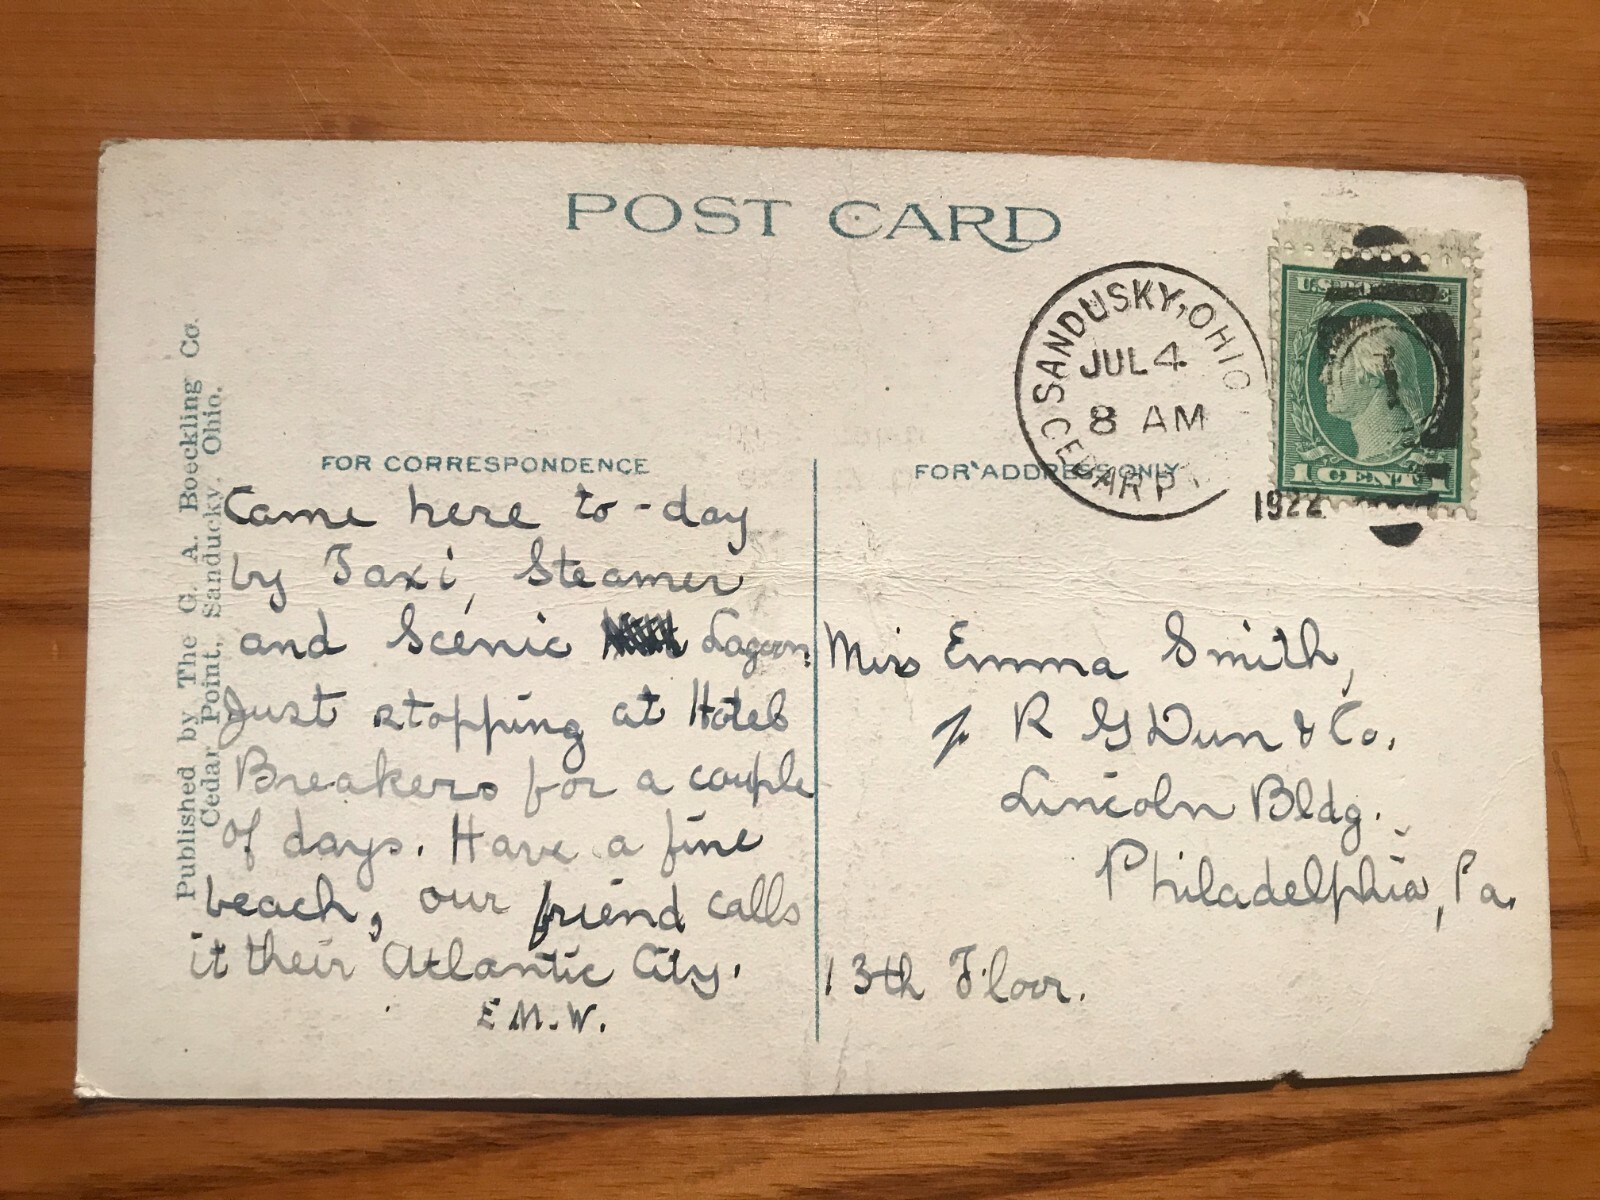 POST CARD
SANDUSKY, OHIO
JUL 4
8 AM
CEDAR P
1922
1 CENT 1
Published by The G. A. Boeckling Co.
Cedar Point, Sanducky, Ohio.
FOR CORRESPONDENCE
Came here to-day
by Taxi, Steamer
and Scenic Lagoon.
Just stopping at Hotel
Breakers for a couple
of days. Have a fine
beach, our friend calls
it their Atlantic City.
E M. W.
FOR ADDRESS ONLY
Miss Emma Smith,
R G Dun & Co.
Lincoln Bldg.
Philadelphia, Pa.
13th Floor.